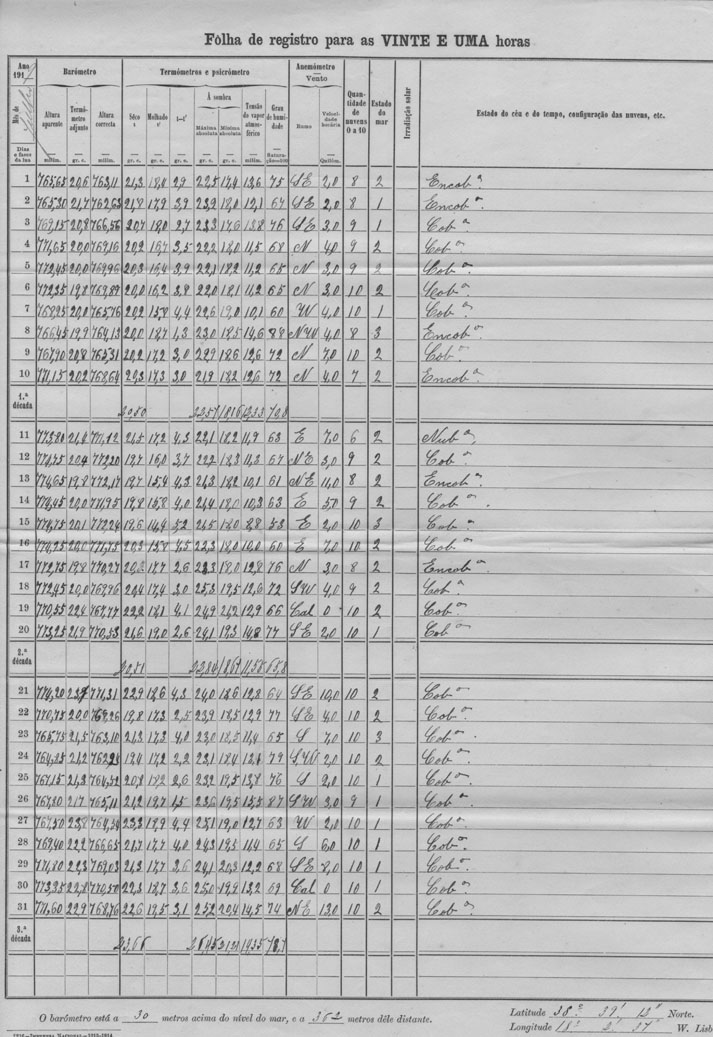 Fôlha de registro para as VINTE E UMA horas
Ano 191
Barómetro
Termómetros e psicrómetro
Anemómetro — Vento
Quantidade de nuvens 0 a 10
Estado do mar
Irradiação solar
Estado do céu e do tempo, configuração das nuvens, etc.
Mês de
Altura aparente
Termómetro adjunto
Altura correcta
Sêco t
Molhado t'
t-t'
Á sombra
Máxima absoluta
Mínima absoluta
Tensão do vapor atmosférico
Grau de humidade
Rumo
Velocidade horária
Dias e fases da lua
milím. gr. c. milím. gr. c. gr. c. gr. c. gr. c. gr. c. milím. Saturação=100 Quilóm.
1 765,65 20,6 763,11 21,3 18,4 2,9 22,5 17,4 13,6 75 SE 2,0 8 2 Encob.ª
2 765,30 21,7 762,63 21,8 17,9 3,9 23,9 18,0 12,1 67 SE 2,0 8 1 Encob.ª
3 769,15 20,8 766,56 20,7 18,0 2,7 23,3 17,6 13,8 76 SE 3,0 9 1 Cob.ª
4 771,65 20,0 769,16 20,2 16,7 3,5 22,2 18,0 11,5 68 N 4,0 9 2 Cob.ª
5 772,45 20,0 769,96 20,3 16,4 3,9 22,1 18,2 11,2 65 N 3,0 9 2 Cob.ª
6 772,35 19,8 769,89 20,0 16,2 3,8 22,0 18,1 11,2 65 N 3,0 10 2 Cob.ª
7 768,25 20,0 765,76 20,2 15,8 4,4 22,6 19,0 10,1 60 W 4,0 10 1 Cob.ª
8 766,45 19,9 764,13 20,0 18,7 1,3 23,0 18,5 14,6 88 NW 4,0 8 3 Encob.ª
9 767,90 20,8 765,31 20,2 17,2 3,0 22,9 18,6 12,6 72 N 7,0 10 2 Cob.ª
10 771,15 20,2 768,64 20,3 17,3 3,0 21,9 18,2 12,6 72 N 4,0 7 2 Encob.ª
1.ª década 20,50 22,57 18,16 12,33 70,8
11 773,80 21,4 771,12 21,5 17,2 4,3 22,1 18,2 11,9 63 E 7,0 6 2 Nub.ª
12 774,75 20,4 772,20 19,7 16,0 3,7 22,2 18,3 11,3 67 NE 3,0 9 2 Cob.ª
13 774,65 19,8 772,17 19,7 15,4 4,3 21,3 18,2 10,1 61 NE 11,0 8 2 Encob.ª
14 774,45 20,0 771,95 19,8 15,8 4,0 21,4 18,0 10,3 63 E 5,0 9 2 Cob.ª
15 774,75 20,1 772,24 19,6 14,4 5,2 21,5 18,0 8,8 53 E 2,0 10 3 Cob.ª
16 774,25 20,0 771,75 20,3 15,8 4,5 22,3 18,0 10,0 60 E 7,0 10 2 Cob.ª
17 772,75 19,8 770,27 20,3 17,7 2,6 22,3 18,0 12,8 76 N 3,0 8 2 Encob.ª
18 772,45 20,0 769,96 20,4 17,4 3,0 25,3 19,5 12,6 72 SW 4,0 9 2 Cob.ª
19 770,55 22,4 767,77 22,2 18,1 4,1 24,9 21,2 12,9 66 Cal 0 10 2 Cob.ª
20 773,25 21,9 770,53 21,6 19,0 2,6 24,1 19,3 14,8 77 SE 2,0 10 1 Cob.ª
2.ª década 20,51 22,84 18,67 11,58 65,8
21 774,20 23,7 771,31 22,9 18,6 4,3 24,0 18,6 12,8 64 SE 10,0 10 2 Cob.ª
22 770,75 20,0 769,26 19,8 17,3 2,5 23,9 18,5 12,9 77 SE 4,0 10 2 Cob.ª
23 765,75 21,5 763,10 21,3 17,3 4,0 23,0 18,5 11,4 65 S 7,0 10 3 Cob.ª
24 764,85 21,2 762,24 19,4 17,2 2,2 23,1 18,4 12,4 79 SW 2,0 10 2 Cob.ª
25 767,15 21,3 764,52 20,8 18,2 2,6 23,2 19,5 13,8 76 S 2,0 10 1 Cob.ª
26 767,80 21,7 765,11 21,2 19,7 1,5 23,6 19,5 15,5 87 SW 3,0 9 1 Cob.ª
27 767,30 23,8 764,34 23,3 18,9 4,4 25,1 19,0 12,7 63 W 2,0 10 1 Cob.ª
28 769,40 22,2 766,65 21,7 17,7 4,0 24,3 19,3 11,4 65 S 6,0 10 1 Cob.ª
29 771,80 22,3 769,03 21,3 17,7 3,6 24,1 20,3 12,2 68 SE 2,0 10 1 Cob.ª
30 773,35 22,8 770,50 22,3 18,7 3,6 25,0 19,9 13,2 69 Cal 0 10 1 Cob.ª
31 771,60 22,9 768,76 22,6 19,5 3,1 25,2 20,4 14,5 74 NE 13,0 10 2 Cob.ª
3.ª década 23,66
O barómetro está a 30 metros acima do nível do mar, e a 362 metros dêle distante.
Latitude 38º 39' 13" Norte.
Longitude 18º 2' 37" W. Lisb